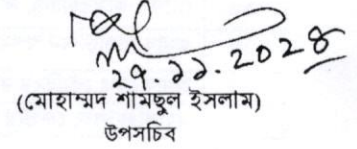 ২৭.১১.২০২৪
(মোহাম্মদ শামছুল ইসলাম)
উপসচিব